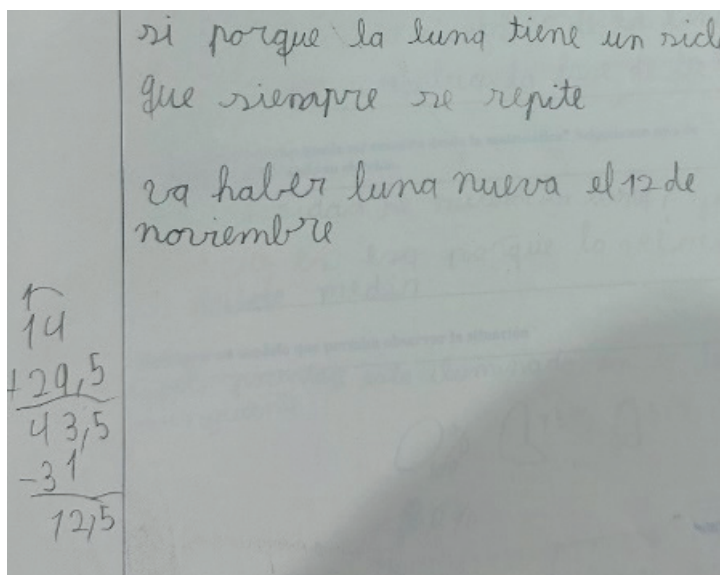 si porque la luna tiene un sicl
que siempre se repite
va haber luna nueva el 12 de
noviembre
1
14
+29,5
43,5
-31
12,5